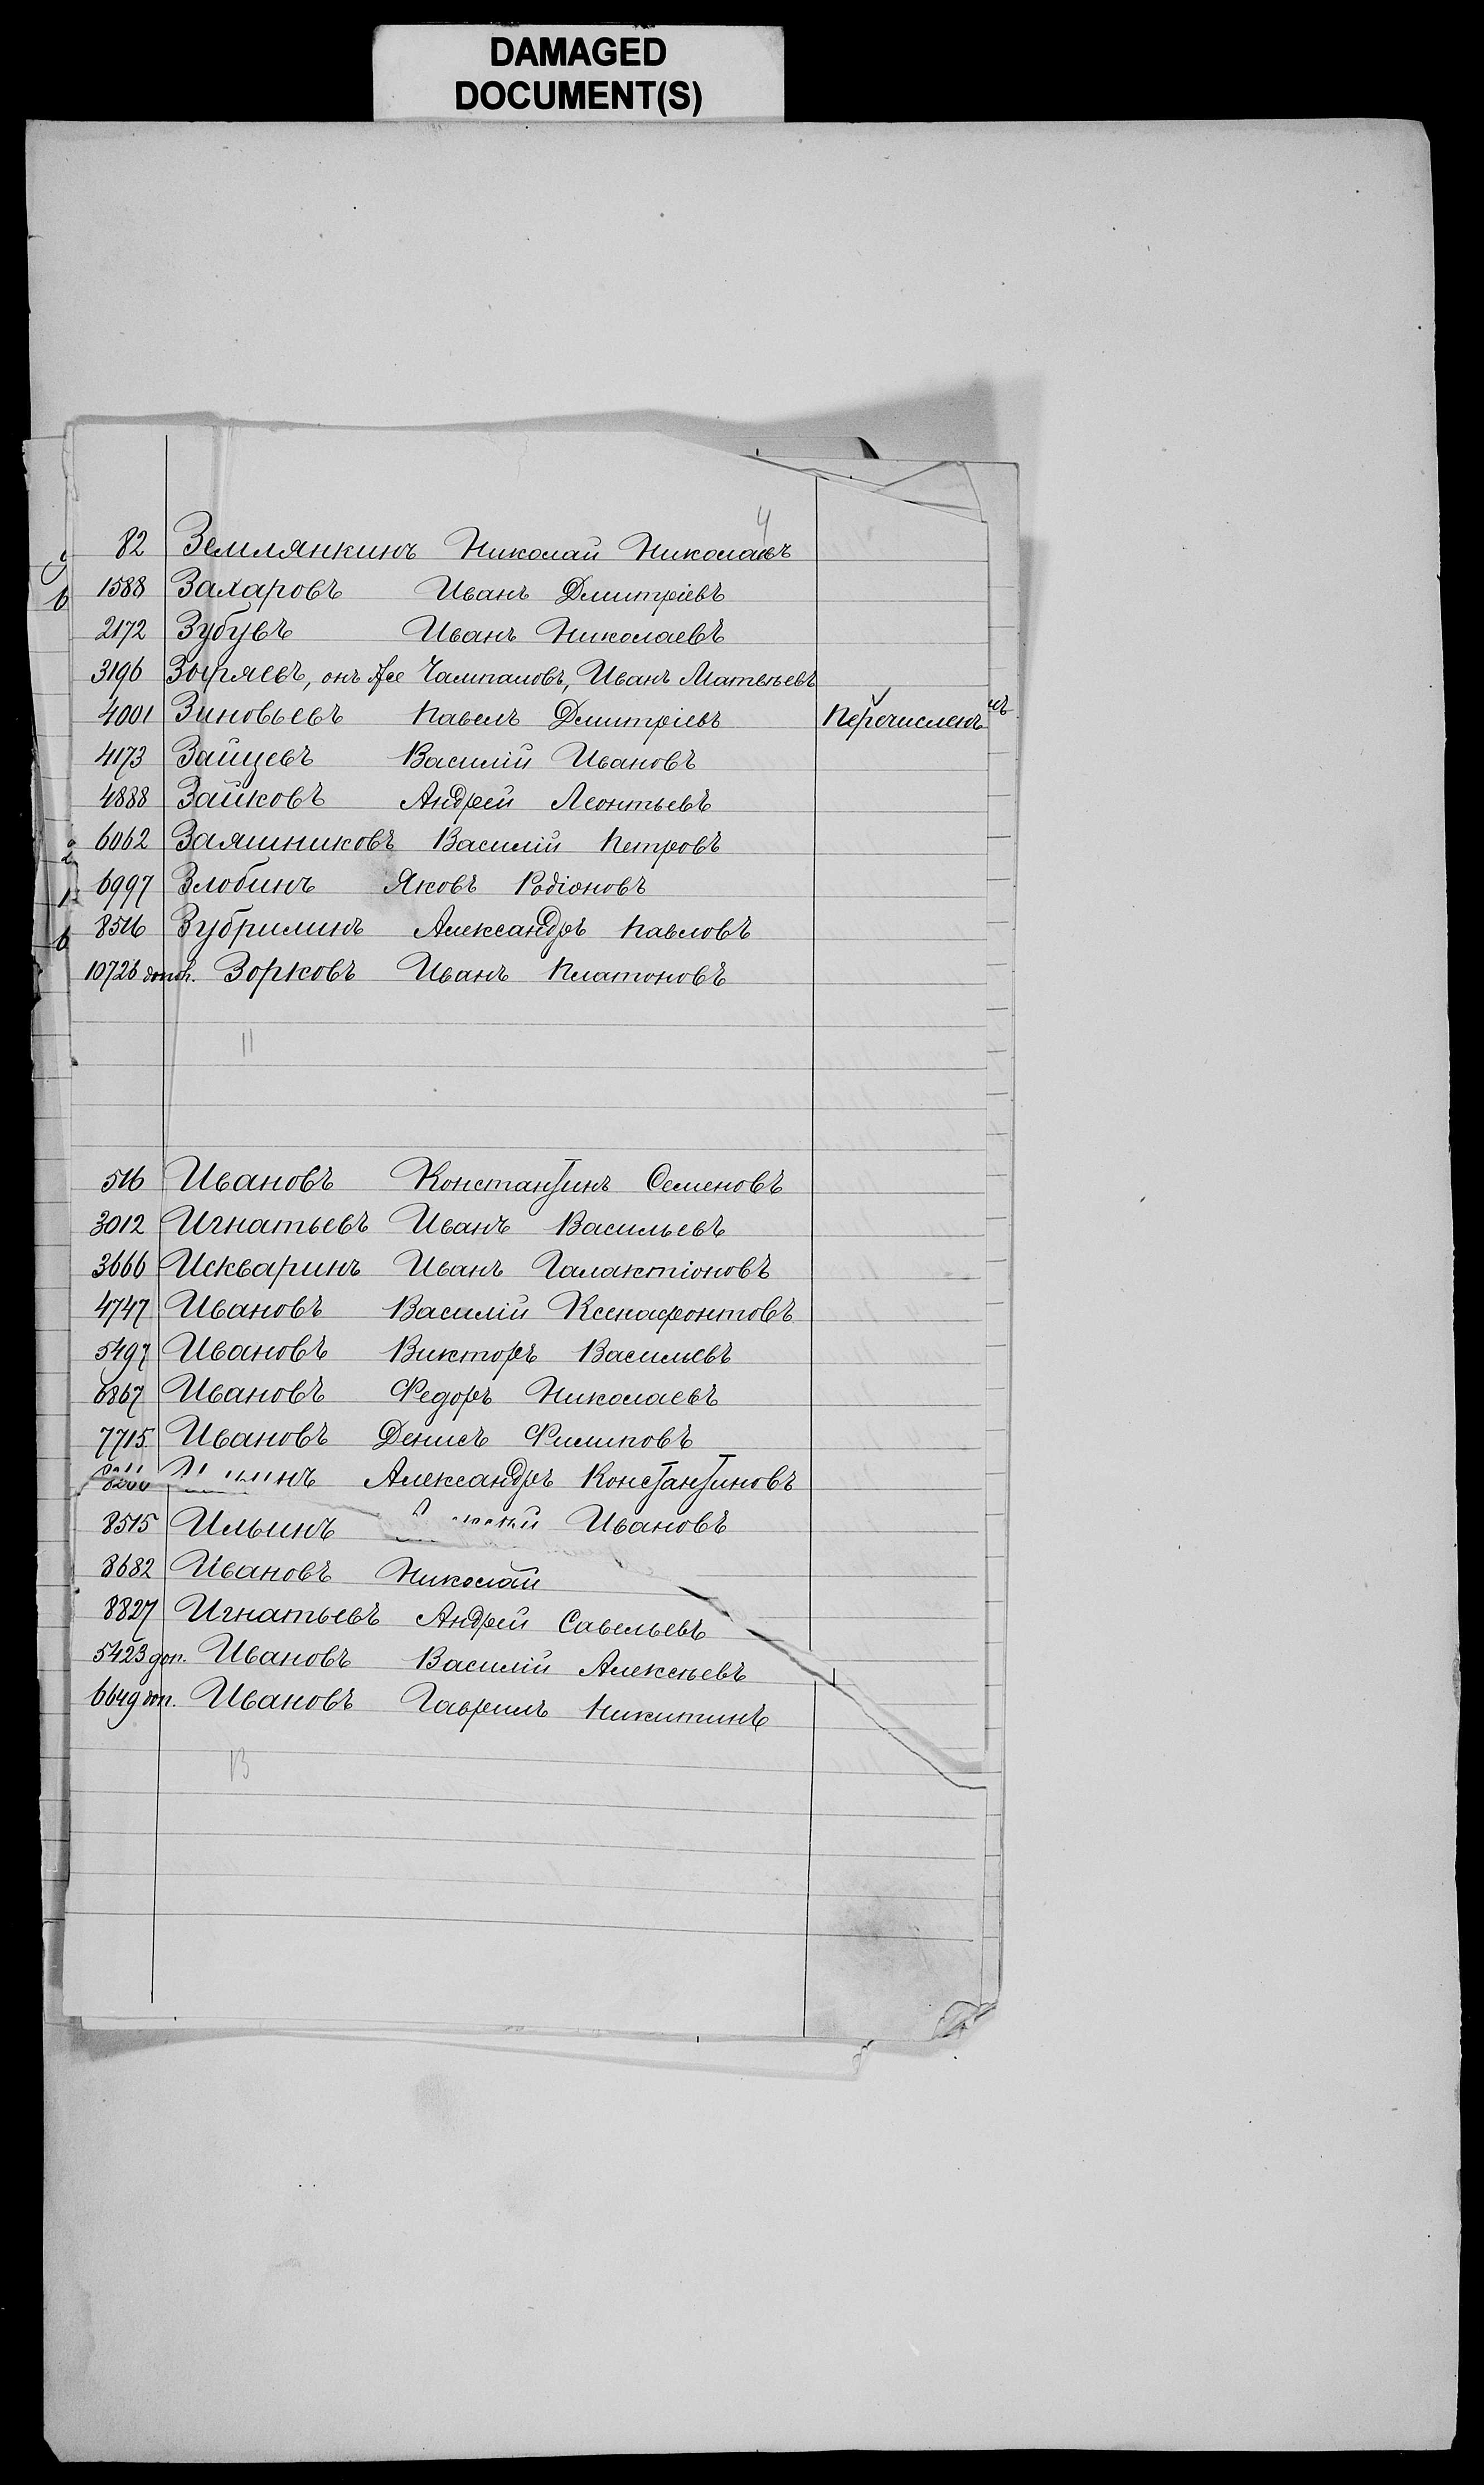 DAMAGED
DOCUMENT(S)
4
82 Землянкинъ Николай Николаевъ
1588 Захаровъ Иванъ Дмитріевъ
2172 Зубувъ Иванъ Николаевъ
3196 Зыряевъ, онъ же Чампаловъ, Иванъ Матвѣевъ
4001 Зиновьевъ Павелъ Дмитріевъ Перечисленъ
4173 Зайцевъ Василій Ивановъ
4888 Зайковъ Андрей Леонтьевъ
6062 Заяшниковъ Василій Петровъ
6997 Злобинъ Яковъ Родіоновъ
8516 Зубрилинъ Александръ Павловъ
10726 допол. Зорковъ Иванъ Платоновъ
11
516 Ивановъ Константинъ Семеновъ
3012 Игнатьевъ Иванъ Васильевъ
3666 Искваринъ Иванъ Галактіоновъ
4747 Ивановъ Василій Ксенафонтовъ
5497 Ивановъ Викторъ Васильевъ
6867 Ивановъ Федоръ Николаевъ
7715 Ивановъ Денисъ Филиповъ
Александръ Константиновъ
8515 Ильинъ Ивановъ
8682 Ивановъ Николай
8827 Игнатьевъ Андрей Савельевъ
5423 доп. Ивановъ Василій Алексѣевъ
6649 доп. Ивановъ Гаврилъ Никитинъ
13